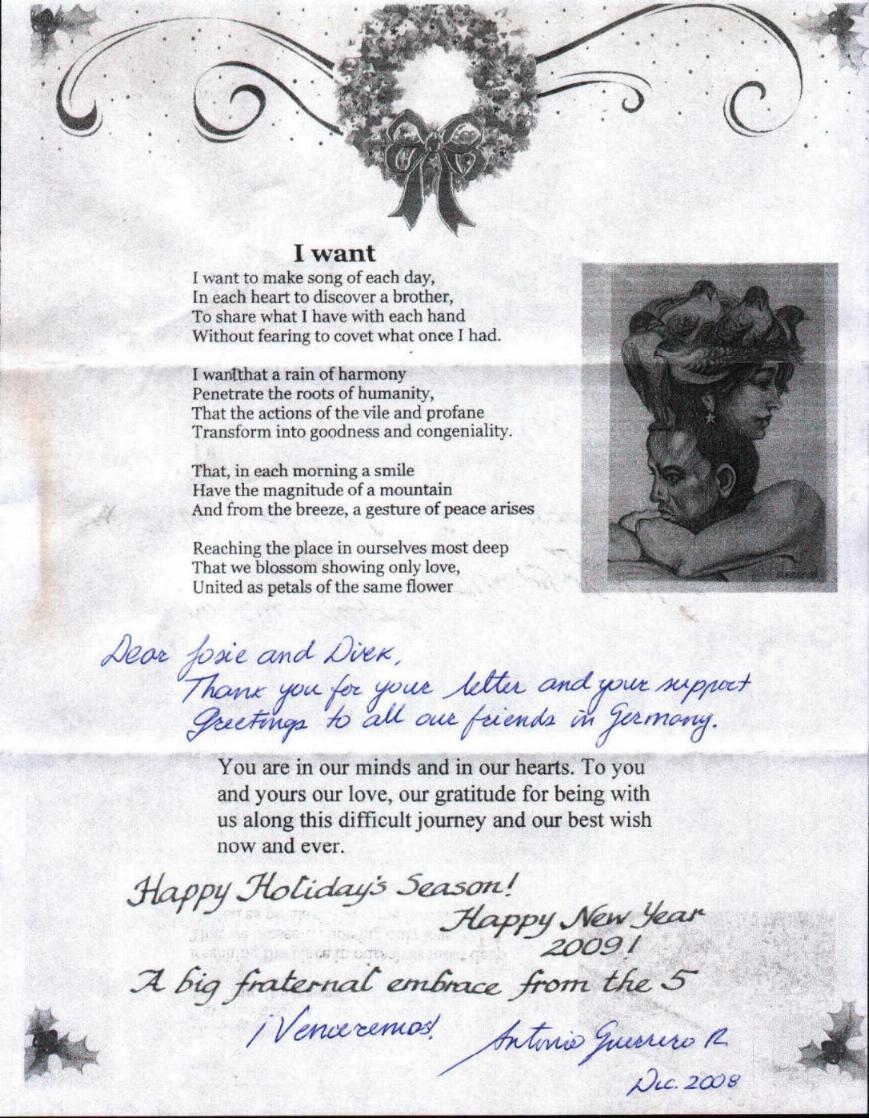 I want
I want to make song of each day,
In each heart to discover a brother,
To share what I have with each hand
Without fearing to covet what once I had.
I want that a rain of harmony
Penetrate the roots of humanity,
That the actions of the vile and profane
Transform into goodness and congeniality.
That, in each morning a smile
Have the magnitude of a mountain
And from the breeze, a gesture of peace arises
Reaching the place in ourselves most deep
That we blossom showing only love,
United as petals of the same flower
Dear Josie and Dirk,
Thank you for your letter and your support
Greetings to all our friends in Germany.
You are in our minds and in our hearts. To you
and yours our love, our gratitude for being with
us along this difficult journey and our best wish
now and ever.
Happy Holiday's Season!
Happy New Year
2009!
A big fraternal embrace from the 5
¡Venceremos!
Antonio Guerrero R.
Dic. 2008